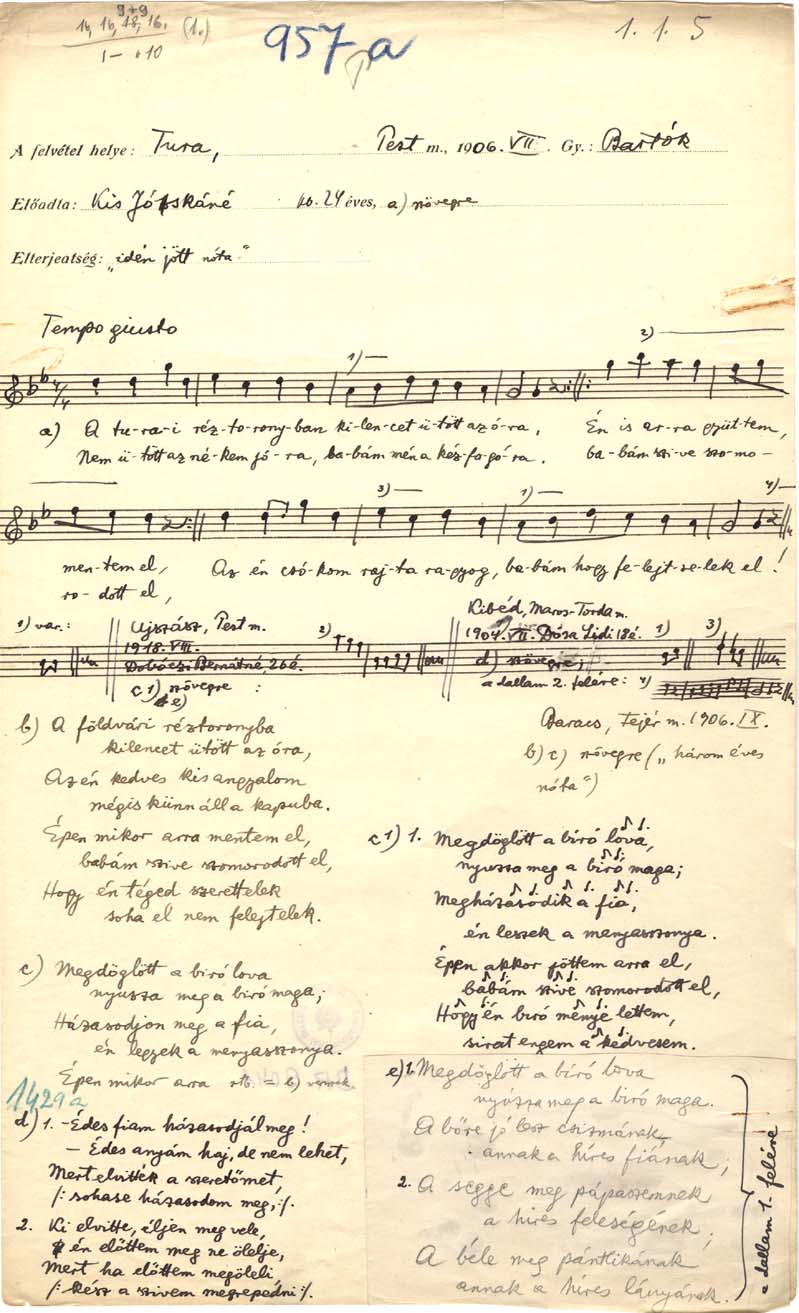 9+9
14, 16, 18, 16. (1.)
1– ·10
957a
1. 1. 5
A felvétel helye: Tura, Pest m., 1906. VII. Gy.: Bartók
Előadta: Kis Józskáné kb. 24 éves, a) szövegre
Elterjeatség: „idén jött nóta"
Tempo giusto
1) 2)
a) A tu-ra-i réz-to-rony-ban ki-len-cet ü-tött az ó-ra, Én is ar-ra gyüt-tem,
Nem ü-tött az né-kem jó-ra, ba-bám mén a kéz-fo-gó-ra. ba-bám szi-ve szo-mo-
3) 1) 4)
men-tem el, Az én csó-kom raj-ta ra-gyog, ba-bám hogy fe-lejt-se-lek el!
ro-dott el,
1) var.:
Ujszász, Pest m.
1918. VIII.
Dobóczi Bernátné, 26 é.
c1) szövegre :
e)
2)
Kibéd, Maros-Torda m.
1904. VII. Dósa Lidi 18 é.
d) szövegre;
a dallam 2. felére: 4)
1) 3)
Baracs, Fejér m. 1906. IX.
b) c) szövegre („három éves
nóta")
b) A földvári réztoronyba
kilencet ütött az óra,
Az én kedves kis angyalom
mégis künn áll a kapuba.
Épen mikor arra mentem el,
babám szive szomorodott el,
Hogy én téged szerettelek
soha el nem felejtelek.
c) Megdöglött a biró lova
nyuzza meg a biró maga;
Házasodjon meg a fia,
én legyek a menyasszonya.
Épen mikor arra stb. = b) versnek.
1429a
d) 1. – Édes fiam házasodjál meg!
– Édes anyám haj, de nem lehet,
Mert elvitték a szeretőmet,
/: sohase házasodom meg, :/.
2. Ki elvitte, éljen meg vele,
én előttem meg ne ölelje,
Mert ha előttem megöleli
/: kész a szivem megrepedni :/.
c1) 1. Megdöglött a biró lova,
nyuzza meg a biró maga;
Megházasodik a fia,
én leszek a menyasszonya.
Éppen akkor jöttem arra el,
babám szive szomorodott el,
Hogy én biró ménye lettem,
sirat engem a kedvesem.
e) 1. Megdöglött a biró lova
nyúzza meg a biró maga.
A bőre jó lesz csizmának
annak a híres fiának;
2. A segge meg pápaszemnek
a híres feleségének;
A béle meg pántlikának
annak a híres lányának.
a dallam 1. felére